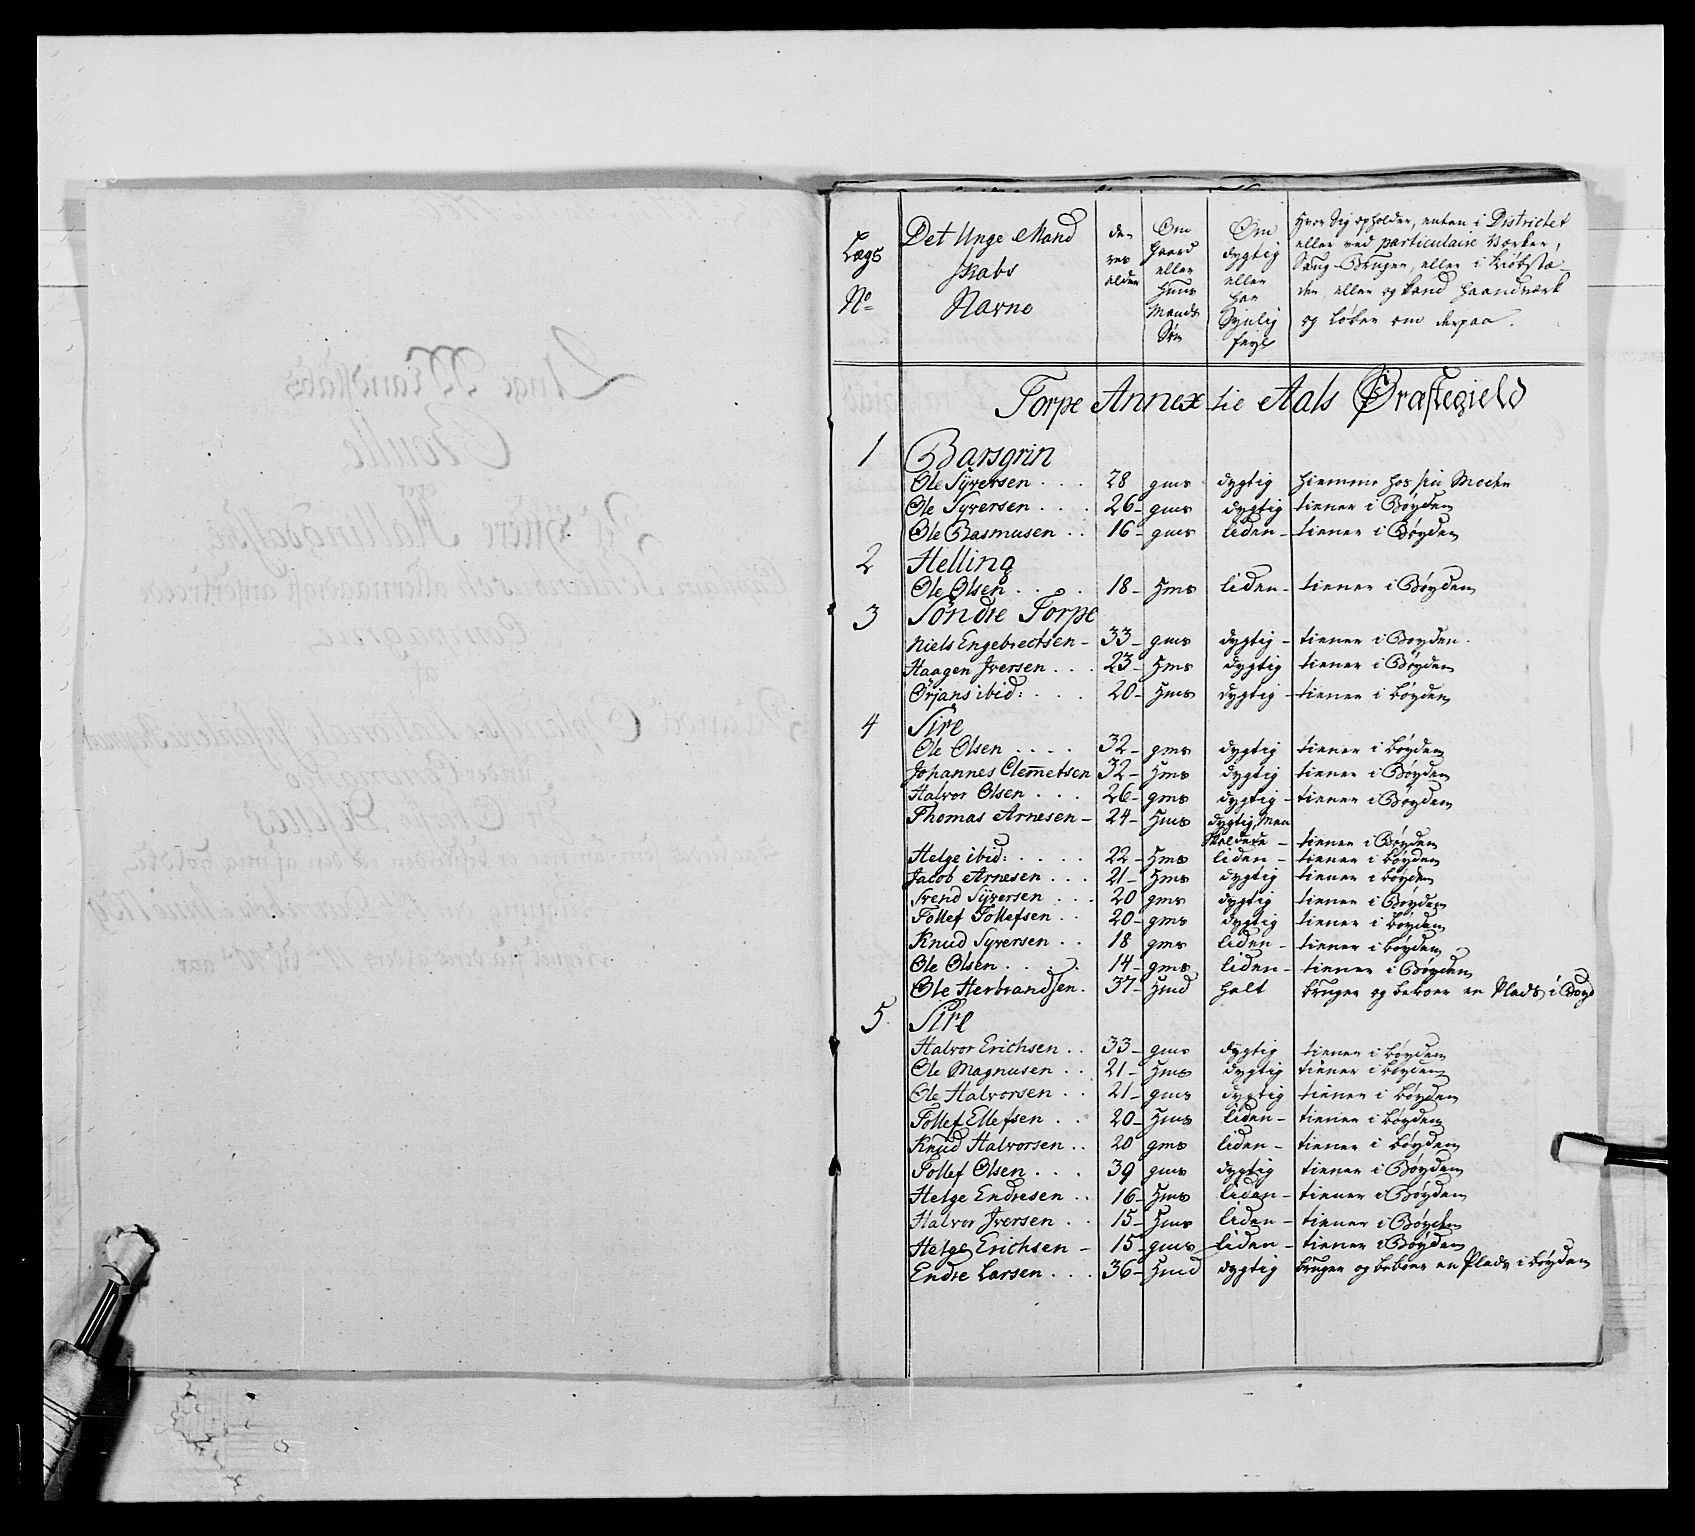 Lægs
No
Det Unge Mand
skabs
Navne
de-
res
alder
Om
gaard
eller
huus
Mands
Søn
Om
dygtig
eller
har
Synlig
feyl
Hvor Sig opholder, enten i Districtet
eller ved particulaire Værker,
Saug-Bruger, eller i Kiøbstæ-
der, eller og kand haandværk
og løber om derpaa.
Torpe Annex til Aals Præstegield
1 Barsgrin
Ole Syversen . . . 28 gms dygtig hiemme hos sin Moder
Ole Syversen . . . 26- gms dygtig tiener i Bøyden
Ole Rasmusen . . 16- gms liden- tiener i Bøyden
2 Helling
Ole Olsen . . . . 18- hms liden- tiener i Bøyden
3 Søndre Torpe
Niels Engebrectsen- 33- gms dygtig- tiener i Bøyden.
Haagen Iversen . . . 23- hms dygtig tiener i Bøyden
Ørjans ibid: . . . 20- hms dygtig- tiener i bøyden
4 Sire
Ole Olsen . . . . 32- gms dygtig tiener i bøyden
Johannes Clemetsen 32- hms dygtig tiener i Bøyden
Halvor Olsen . . . 26- gms dygtig- tiener i Bøyden
Thomas Arnesen- 24- hms dygtig, Men
skaldede- tiener i Bøyden
Helge ibid: . . . . 22- hms liden- tiener i bøyden
Jacob Arnesen . . . 21- hms dygtig tiener i bøyden
Svend Syversen . . . 20 gms dygtig tiener i Bøyden
Tollef Tollefsen . . 20- gms dygtig tiener i bøyden
Knud Syversen . . 18 gms liden- tiener i bøyden
Ole Olsen . . . . 14- gms liden- tiener i Bøyden
Ole Herbrandsen. 37- hmd halt bruger og beboer en Plads i Bøyd
5. Sire
Halvor Erichsen . . 33- gms dygtig tiener i bøyden
Ole Magnusen . . 21- hms dygtig tiener i bøyden
Ole Halvorsen . . 21- gms dygtig tiener i bøyden
Tollef Ellefsen . . 20- hms liden- tiener i bøyden
Knud Halvorsen . . 20 gms liden- tiener i bøyden
Tollef Olsen . . . 39 gms dygtig tiener i Bøyden
Helge Endresen . . 16- hms liden- tiener i Bøyden
Halvor Iversen . . 15- hms liden- tiener i Bøyden
Helge Erichsen- 15- gms- liden- tiener i Bøyden
Endre Larsen . . . 36- hmd dygtig bruger og beboer en Plads i bøyden